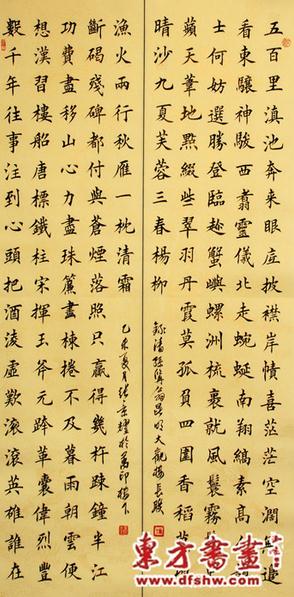 五百里滇池奔來眼底披襟岸幘喜茫茫空濶無邊
看東驤神駿西翥靈儀北走蜿蜒南翔縞素高人韻
士何妨選勝登臨趁蟹嶼螺洲梳裹就風鬟霧
蘋天葦地點綴些翠羽丹霞莫孤負四圍香稻
晴沙九夏芙蓉三春楊柳
錄清孫髯翁昆明大觀樓長聯
數千年往事注到心頭把酒凌虛歎滾滾英雄誰在
想漢習樓船唐標鐵柱宋揮玉斧元跨革囊偉烈豐
功費盡移山心力盡珠簾畫棟捲不及暮雨朝雲便
斷碣殘碑都付與蒼煙落照只贏得幾杵疎鐘半江
漁火兩行秋雁一枕清霜
乙未夏月張於萬印樓下
東方書畫
www.dfshw.com